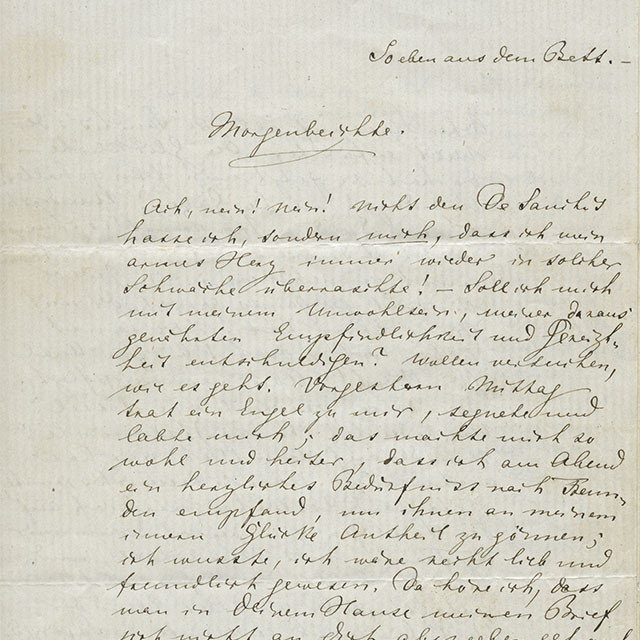 So eben aus dem Bett. –
Morgenbeichte.
Ach, nein! nein! nicht den De Sanctis
hasse ich, sondern mich, dass ich mein
armes Herz immer wieder in solcher
Schwäche überraschte! – Soll ich mich
mit meinem Unwohlsein, meiner daraus
genährten Empfindlichkeit und Gereizt-
heit entschuldigen? Wollen versuchen,
wie es geht. Vorgestern Mittag
trat ein Engel zu mir, segnete und
labte mich; das machte mich so
wohl und heiter, dass ich am Abend
ein herzliches Bedürfniss nach Freun-
den empfand, um ihnen an meinem
innern Glücke Antheil zu gönnen;
ich wusste, ich wäre recht lieb und
freundlich gewesen. Da höre ich, dass
man in Deinem Hause meinen Brief
sich nicht an Dich abzugeben